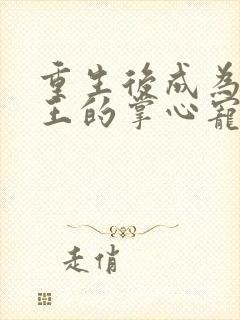 重生後成為
王的掌心寵
走俏